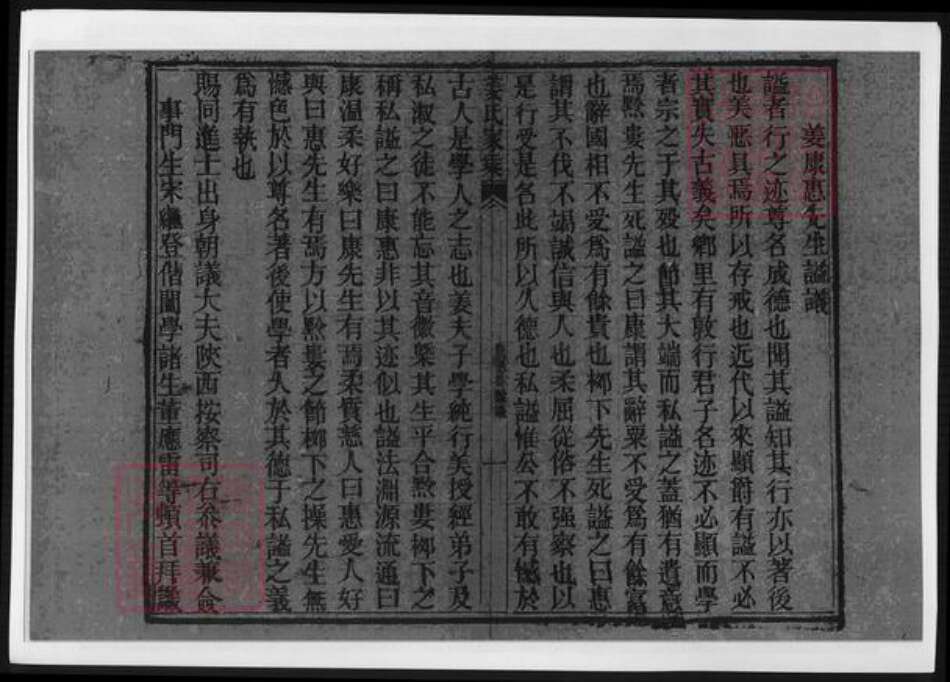 姜康惠先生謚議
謚者行之迹尊名成德也聞其謚知其行亦以著後
也美惡具焉所以存戒也近代以來顯爵有謚不必
其實失古義矣鄉里有敦行君子名迹不必顯而學
者宗之于其歿也節其大端而私謚之蓋猶有遺意
焉黔婁先生死謚之曰康謂其辭粟不受為有餘富
也辭國相不受為有餘貴也栁下先生死謚之曰惠
謂其不伐不竭誠信與人也柔屈從俗不强察也以
是行受是名此所以久德也私謚惟公不敢有憾於
姜氏家乘
古人是學人之志也姜夫子學純行美授經弟子及
私淑之徒不能忘其音徽槩其生平合黔婁栁下之
稱私謚之曰康惠非以其迹似也謚法淵源流通曰
康温柔好樂曰康先生有焉柔質慈人曰惠愛人好
與曰惠先生有焉方以黔婁之節栁下之操先生無
憾色於以尊名著後使學者入於其德于私謚之義
為有執也
賜同進士出身朝議大夫陝西按察司右叅議兼僉
事門生宋繼登偕闔學諸生董應雷等頓首拜議